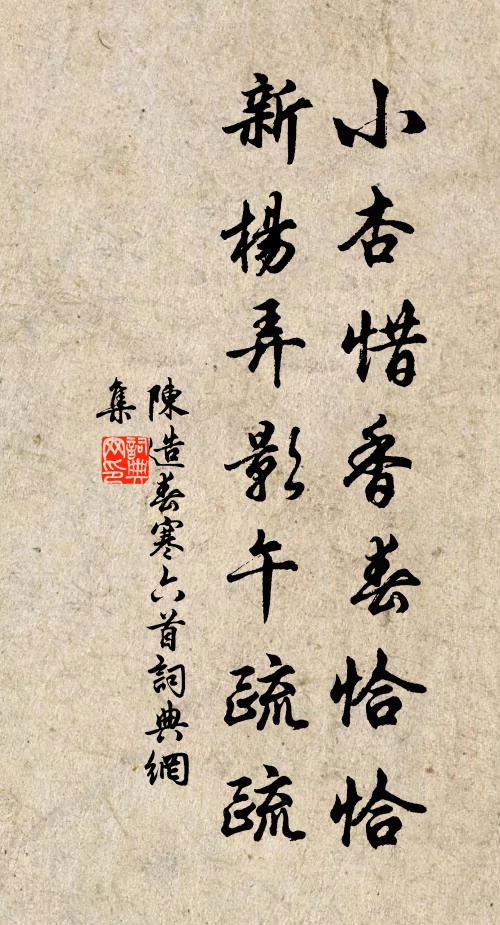 小杏惜香春恰恰
新楊弄影午疏疏
陳造春寒六首詞典網
集
詞典網印